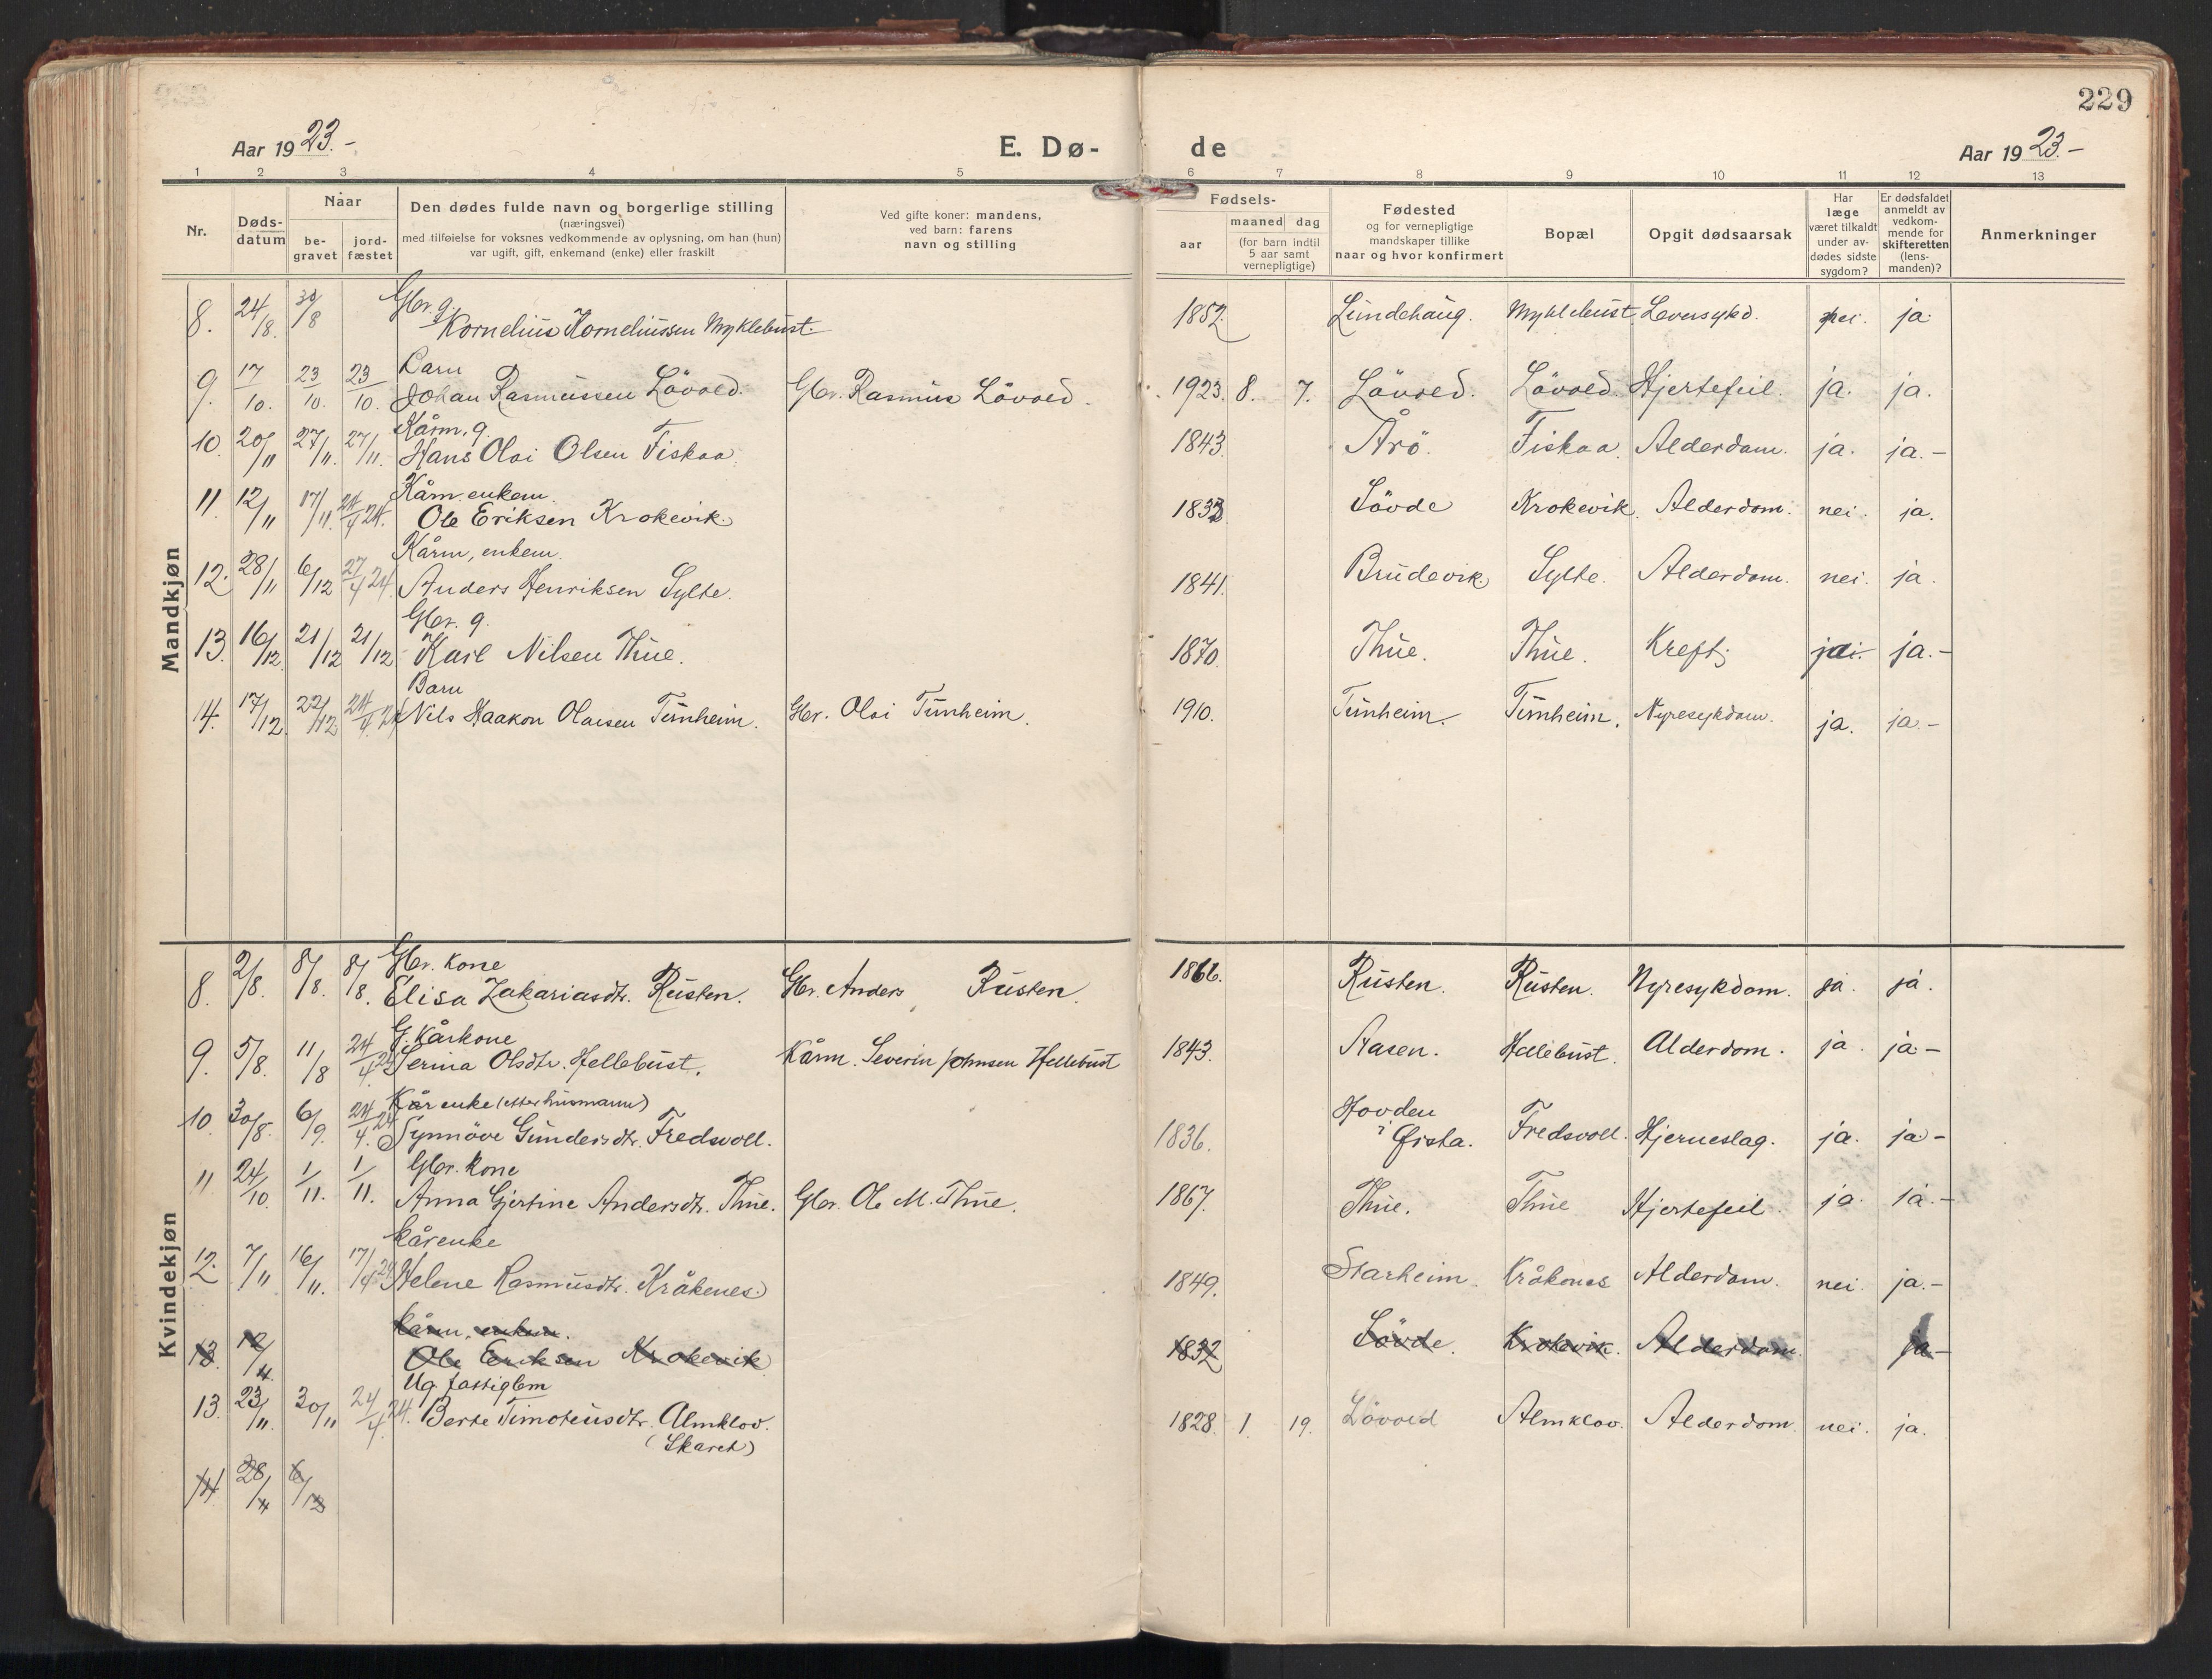 229
Aar 1923.-
E. Dø-
de
Aar 1923.-
1 2 3 4 5 6 7 8 9 10 11 12 13
Nr.
Døds-
datum
Naar
be-
gravet
jord-
fæstet
Den dødes fulde navn og borgerlige stilling
(næringsvei)
med tilføielse for voksnes vedkommende av oplysning, om han (hun)
var ugift, gift, enkemand (enke) eller fraskilt
Ved gifte koner: mandens,
ved barn: farens
navn og stilling
Fødsels-
aar
maaned dag
(for barn indtil
5 aar samt
vernepligtige)
Fødested
og for vernepligtige
mandskaper tillike
naar og hvor konfirmert
Bopæl
Opgit dødsaarsak
Har
læge
været tilkaldt
under av-
dødes sidste
sygdom?
Er dødsfaldet
anmeldt av
vedkom-
mende for
skifteretten
(lens-
manden)?
Anmerkninger
Mandkjøn
Gbr. g.
8. 24/8. 30/8 Kornelius Korneliussen Myklebust. 1852. Lundehaug. Myklebust. Leversykd. nei. ja.
Barn
9. 17/10. 23/10. 23/10. Johan Rasmussen Lövold. Gbr. Rasmus Lövold. 1923. 8. 7. Lövold. Lövold. Hjertefeil. ja. ja.
Kårm. g.
10. 20/11 27/11. 27/11. Hans Olai Olsen Fiskaa. 1843. Årö. Fiskaa. Alderdom. ja. ja.-
Kårm. enkem.
11. 12/11 17/11. 24/4 24. Ole Eriksen Krokevik. 1832 Sövde Krokevik. Alderdom. nei. ja.
Kårm, enkem.
12. 28/11 6/12 27/4 24. Anders Henriksen Sylte. 1841. Brudevik Sylte. Alderdom. nei. ja.
Gbr. g.
13. 16/12. 21/12 21/12 Karl Nilsen Thue. 1870. Thue. Thue. Kreft. ja. ja.-
Barn
14. 17/12. 22/12. 24/4. 24 Nils Haakon Olaisen Tunheim. Gbr. Olai Tunheim. 1910. Tunheim. Tunheim. Nyresykdom. ja. ja.-
Kvindekjøn
Gbr. kone
8. 2/8. 8/8. 8/8. Elisa Zakariasdtr. Rusten. Gbr. Anders Rusten. 1866. Rusten. Rusten. Nyresykdom. ja. ja.
G. kårkone
9. 5/8. 11/8 24/4. 24 Serina Olsdtr. Hellebust. Kårm. Severin Johnsen Hellebust 1843. Aasen. Hellebust. Alderdom. ja. ja-
Kårenke (efter husmann)
10. 30/8. 6/9. 24/4. 24 Synnöve Gundersdtr. Fredsvoll. 1836. Hovden i Ørsta. Fredsvoll. Hjerneslag. ja. ja-
Gbr. kone
11 24/10. 1/11. 1/11. Anna Gjertine Andersdtr. Thue. Gbr. Ole M. Thue. 1867. Thue. Thue Hjertefeil. ja. ja.-
Kårenke
12. 7/11 16/11. 17/4 24 Helene Rasmusdtr. Kråkenes. 1849. Starheim. Kråkenes Alderdom. nei. ja.-
Kårm, enkem.
13 12/11. Ole Eriksen Krokevik 1832 Sövde. Krokevik. Alderdom. ja-
Ug. fattiglem
13. 23/11. 30/11 24/4 24. Berte Timoteusdtr. Almklov. 1828. 1. 19. Lövold Almklov. Alderdom. nei. ja.
(Skaret)
14 28/11 6/12